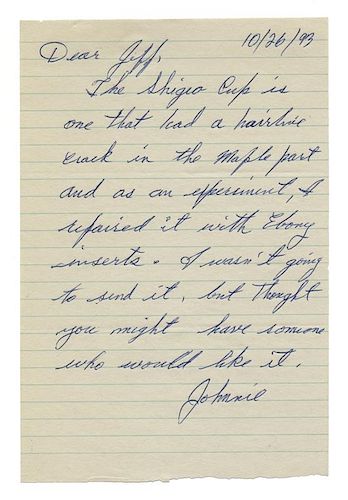 10/26/93
Dear Jeff,
The Shigio Cup is
one that had a hairline
crack in the Maple part
and as an experiment, I
repaired it with Ebony
inserts. I wasn't going
to send it, but Thought
you might have someone
who would like it.
Johnnie